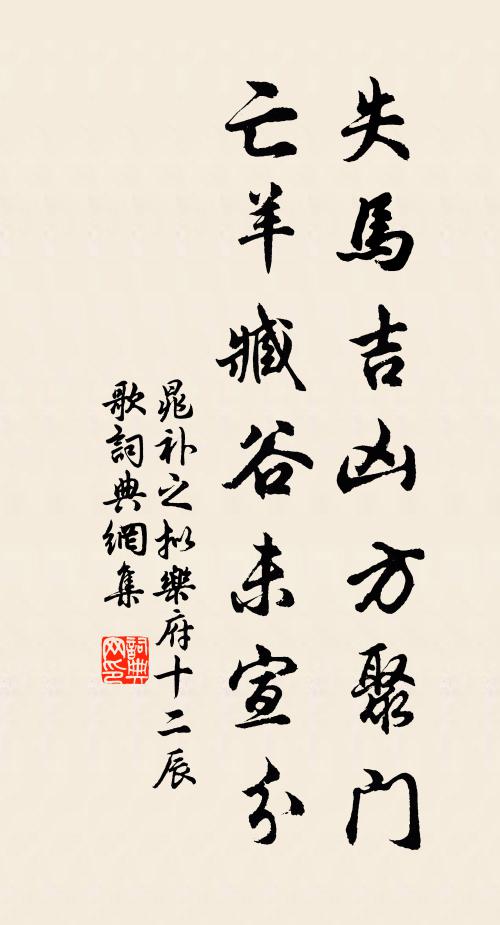 失馬吉凶方聚門
亡羊臧谷未宣分
晁补之拟樂府十二辰
歌詞典網集
詞典
网印